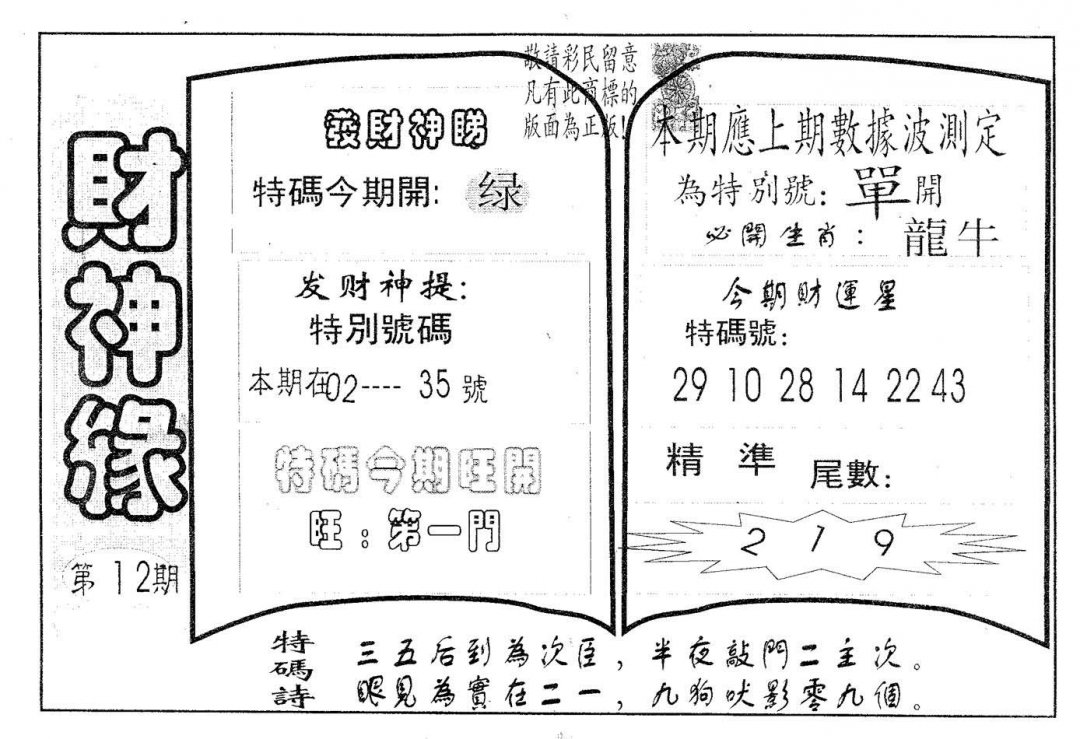 財神緣
第12期
敬請彩民留意
凡有此商標的
版面為正版!
發財神睇
特碼今期開: 绿
发财神提:
特別號碼
本期在02----35號
特碼今期旺開
旺:第一門
本期應上期數據波測定
為特別號:單開
必開生肖:龍牛
今期財運星
特碼號:
29 10 28 14 22 43
精準 尾數:
2 1 9
特碼詩
三五后到為次臣,半夜敲門二主次。
眼見為實在二一,九狗吠影零九個。